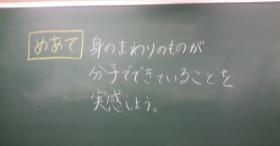 めあて 身のまわりのものが
分子でできていることを
実感しよう。